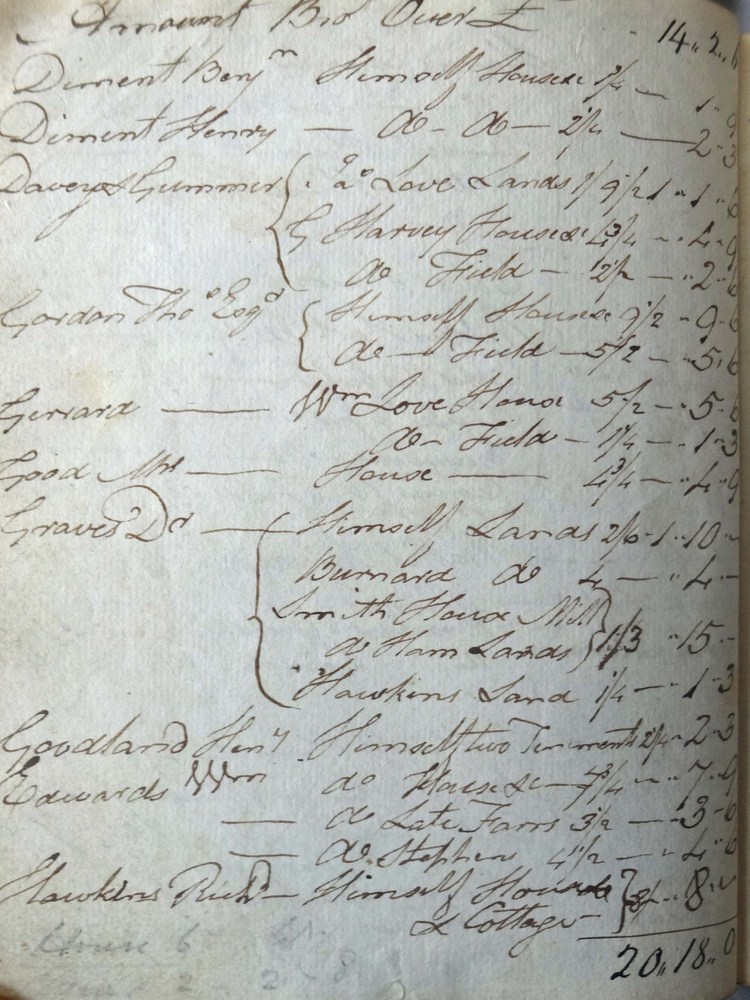 Amount Bro<sup>t</sup> Over £ - 14 .. 2 .. 6
Diment Benj<sup>n</sup> Himself House &c 1¾ — 1 - 9
Diment Henry — do - do — 2¼ — 2 - 3
Davey & Gummer { Love Lands 1/9½ 1 .. 1 .. 6
Harvey House &c 4¾ - .. 4 - 9
do Field — 2½ — .. 2 - 6
Gordon Tho<sup>s</sup> Esq<sup>r</sup> { Himself House &c 9½ - 9 - 6
do — Field — 5½ — .. 5 .. 6
Gerrard — W<sup>m</sup> Love House 5½ — .. 5 - 6
do - Field — 1¼ — .. 1 - 3
Good Mrs — House — 4¾ — .. 4 .. 9
Graves D<sup>r</sup> — { Himself Lands 2/6 - 1 .. 10 -
Burnard do 4 — .. 4 -
Smith House Mill
do Ham Lands } 1/3 .. 15 -
Hawkins Land 1¼ — .. 1 - 3
Goodland Hen<sup>y</sup> Himself two Tenements 2¼ - 2 - 3
Edwards W<sup>m</sup> do House &c — 7¾ - .. 7 - 9
— do Late Farrs 3½ — .. 3 - 6
— do Stephen 4½ — .. 4 - 6
Hawkins Rich<sup>d</sup> — Himself House
& Cottage — } 8/- .. 8 ..
20 .. 18 .. 0